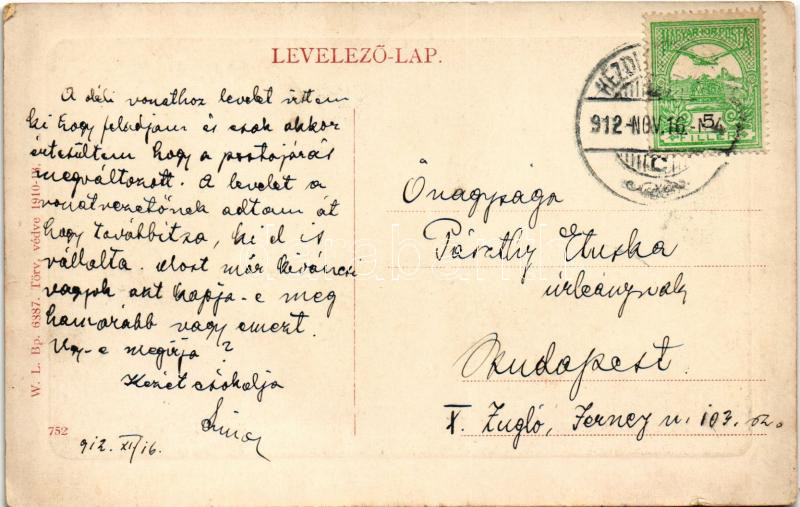 LEVELEZŐ-LAP.
A déli vonathoz levelet vittem
ki hogy feladjam és csak akkor
értesültem hogy a postajárás
megváltozott. A levelet a
vonatvezetőnek adtam át
hogy továbbítsa, ki el is
vállalta. Most már kíváncsi
vagyok azt kapja-e meg
hamarább vagy emezt.
Ugy-e megírja?
Kezét csókolja
912. XI/16.
752
W. L. Bp. 6387. Törv. védve 1910-
MAGYAR·KIR·POSTA
5
FILLÉR
KÉZDI
912-NOV.16.-
Őnagysága
Pászthy Etuska
úrleánynak
Budapest.
X. Zugló, Jerney u. 103. sz.
darabanth